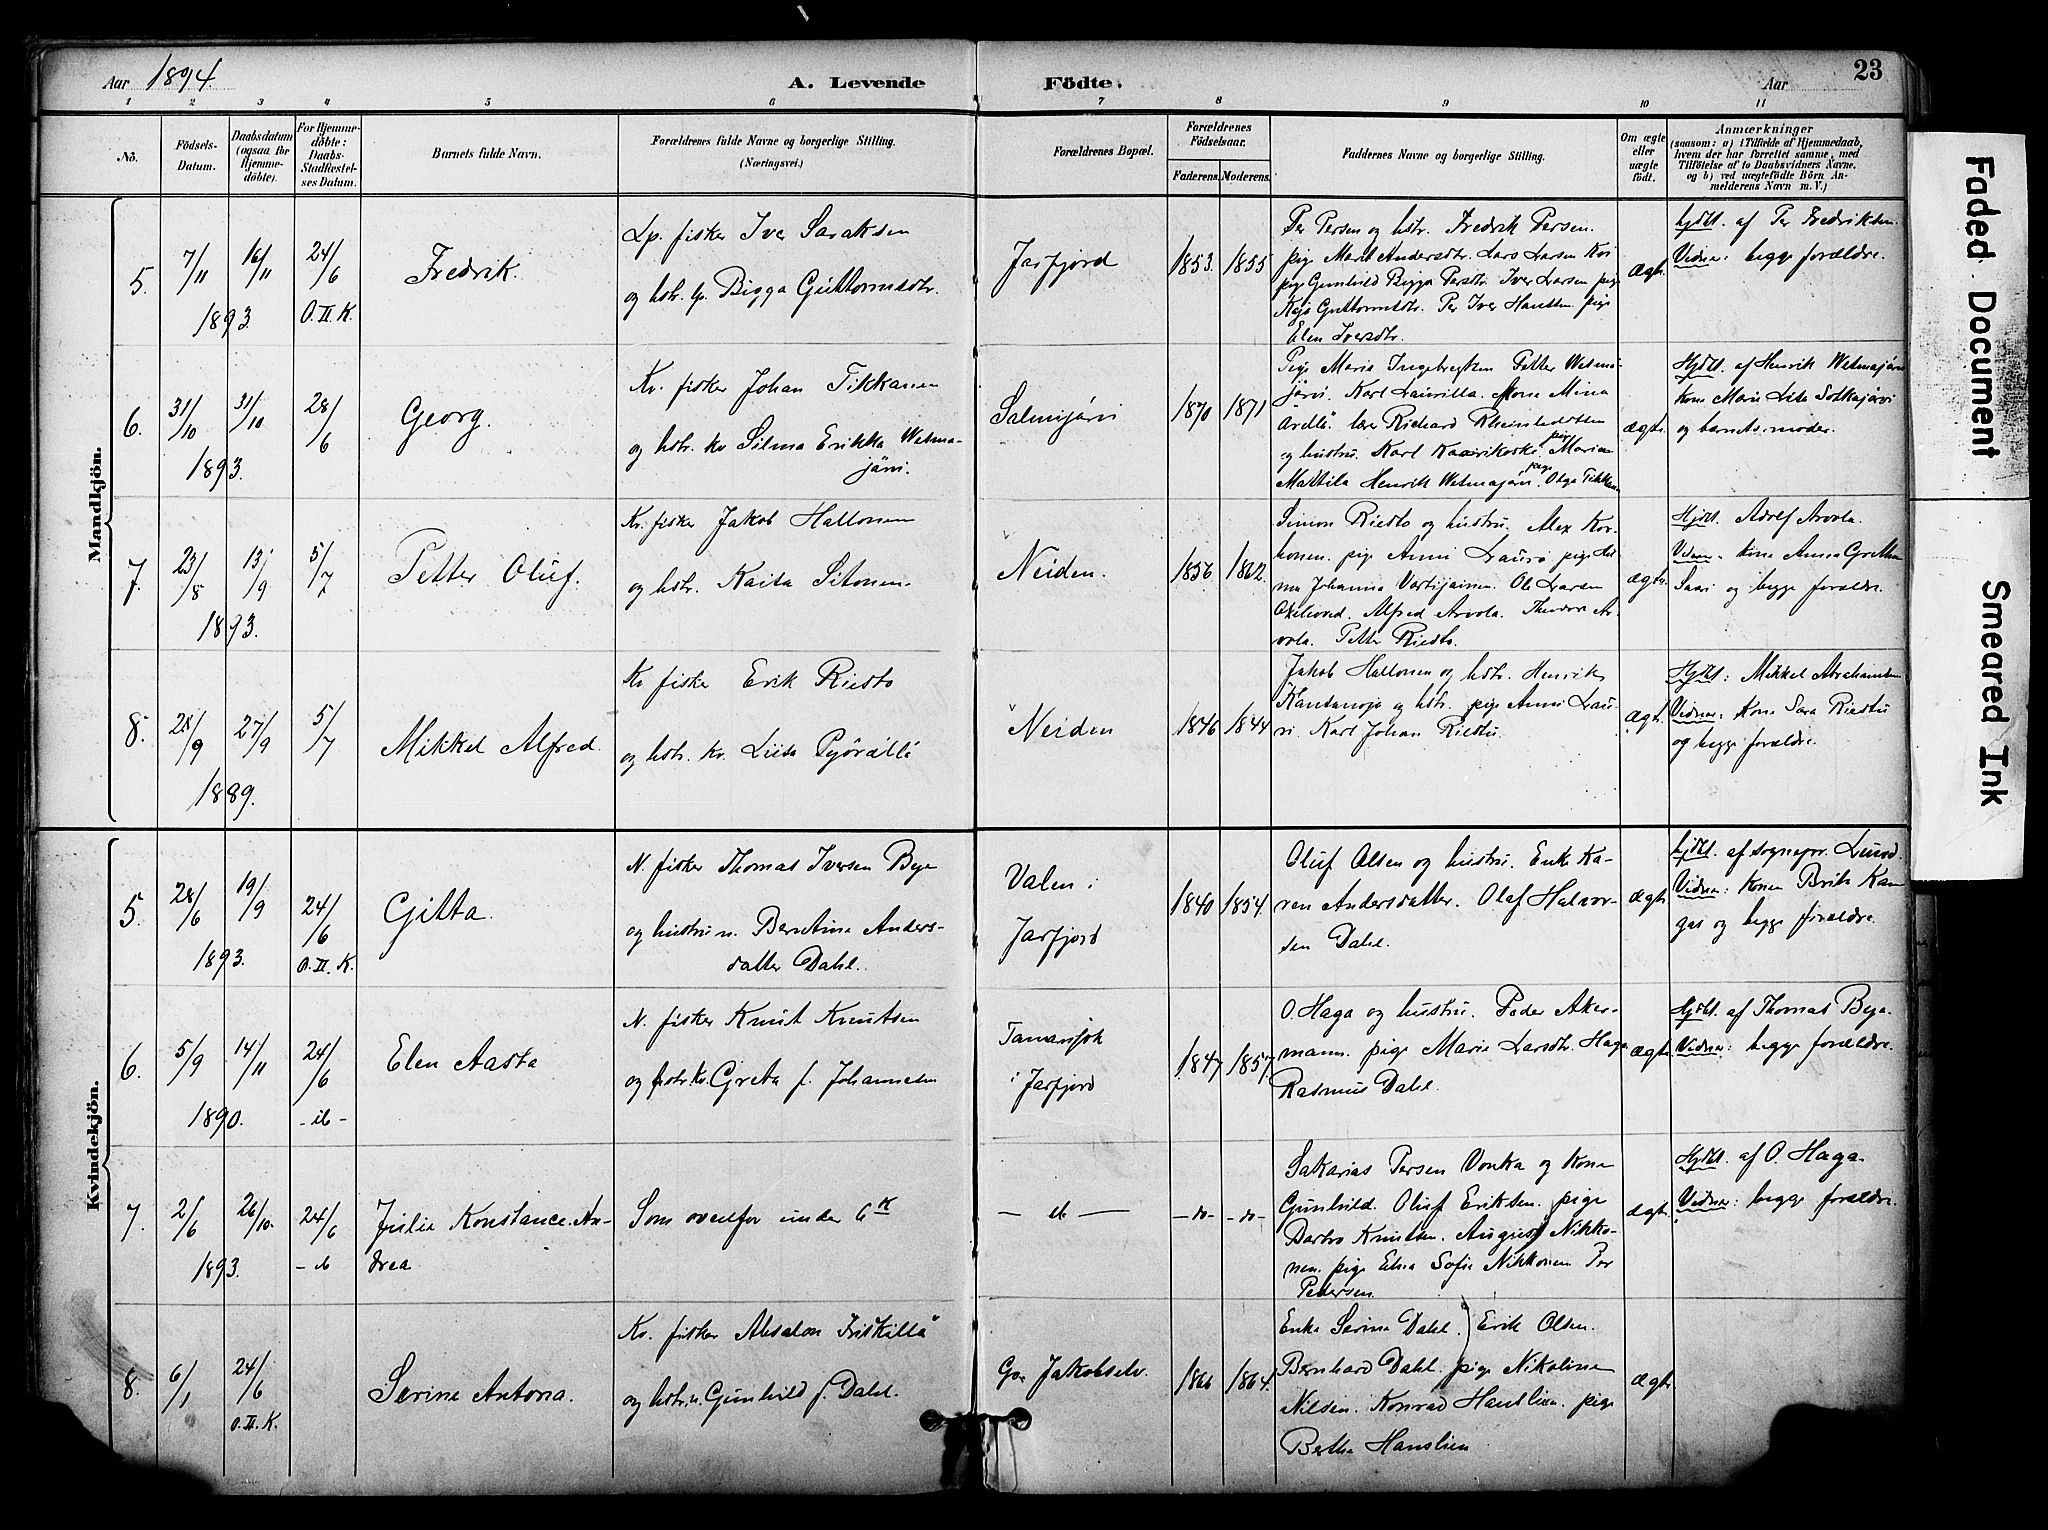 Aar 1894.
A. Levende Födte.
Aar
23
1 2 3 4 5 6 7 8 9 10 11
Nô.
Födsels-
Datum.
Daabsdatum
(ogsaa for
Hjemme-
döbte).
For Hjemme-
döbte:
Daabs-
Stadfæstel-
ses Datum.
Barnets fulde Navn.
Forældrenes fulde Navne og borgerlige Stilling.
(Næringsvei.)
Forældrenes Bopæl.
Forældrenes
Födselsaar.
Faderens. Moderens.
Faddernes Navne og borgerlige Stilling.
Om ægte
eller
uægte
födt.
Anmærkninger
(saasom: a) i Tilfælde af Hjemmedaab,
hvem der har forrettet samme, med
Tilföielse af to Daabsvidners Navne,
og b) ved uægtefödte Börn An-
melderens Navn m. V.)
Mandkjön.
5.
7/11
16/11
1893.
24/6
O. II. K.
Fredrik.
Lp. fisker Iver Saraksen
og hstr. lp. Bigga Guttormsdtr.
Jarfjord
1853. 1855
Per Persen og hstr. Fredrik Persen.
pige Marit Andersdtr. Lars Larsen
pige Gunhild Bigga Persdtr. Iver Larsen pige
Guttormsdtr. Per Iver Hansen pige
Elen Iversdtr.
ægte
hjdbt. af Per Fredriksen.
Vidner: begge forældre.
6.
31/10
31/10
1893.
28/6
Georg.
Kv. fisker Johan Tikkanen
og hstr. kv Silma Erikka Wetsma-
järvi.
Salmijärvi
1870 1871
Pige Maria Ingebregtsen Petter
järvi. Karl Laurilla. Kone Mina
Richard
og hustru. Karl pige Maria
Mattila Henrik Wetsmajärvi. pige Olga Tikkanen
ægte
Hjdbt. af Henrik Wetsmajärvi
Kone Marie Lisa Sotkajärvi
og barnets moder.
7.
23/8
13/9
1893.
5/7
Petter Oluf.
Kv. fisker Jakob Hallonen
og hstr. Kaisa Sitonen.
Neiden.
1856 1862.
Simon Riesto og hustru. Alex Kor-
honen. pige Anni Lauri pige Hel-
Johanna Ole Larsen
Alfred Arvola. Theodor Ar-
vola. Petter Riesto.
ægte
Hjdbt. Adolf Arvola.
Vidner: kone Anna Gretha
Saari og begge forældre.
8.
28/9
27/9
1889.
5/7
Mikkel Alfred.
Kv fisker Erik Riesto
og hstr. kv. Liisa Pyörällä
Neiden
1846 1844
Jakob Hallonen og hstr. Henrik
Kantanoja og hstr. pige Anni Lau-
ri. Karl Johan Riesto.
ægte
Hjdbt: Mikkel Abrahamsen
Vidner: Kone Sara Riesto
og begge forældre.
Kvindekjön.
5.
28/6
19/9
1893.
24/6
O. II. K.
Gitta.
N. fisker Thomas Iversen Bye
og hustru n. Berntine Anders-
datter Dahl.
Valen i
Jarfjord
1840 1854.
Oluf Olsen og hustru. Enke Ka-
ren Andersdatter. Olaf Halvor-
sen Dahl.
ægte
hjdbt. af sognepr. Lund.
Vidner: Konen Brita Kan-
gas og begge forældre.
6.
5/9
14/11
1890.
24/6
- ib -
Elen Aasta
N. fisker Knut Knutsen
og hstr. kv. Greta f. Johannesen
i Jarfjord
1847 1857.
O. Haga og hustru. Peder Aker-
mann. pige Marie Larsdtr. Haga
Rasmus Dahl.
ægte
Hjdbt. af Thomas Bye.
Vidner: begge forældre.
7.
2/6
26/10.
1893.
24/6
- ib
Julie Konstance An-
drea
Som ovenfor under 6 K
— ib —
- do - - do -
Sakarias Persen Vonka og Kone
Gunhild. Oluf Eriksen. pige
Knudsen. August Nikko-
nen. pige Elna Sofie Nikkonen Per
Pedersen.
ægte
Hjdbt. af O. Haga.
Vidner: begge forældre.
8.
6/1
24/6
O. II. K.
Serine Antona.
Kv. fisker Absalon Friskillä
og hstr. n. Gunhild f. Dahl.
Gr. Jakobselv.
1866 1864.
Enke Serine Dahl. Erik Olsen.
Bernhard Dahl. pige Nikoline
Nilsen. Konrad Hanslien. pige
Berthe Hanslien
ægte
Faded Document
Smeared Ink